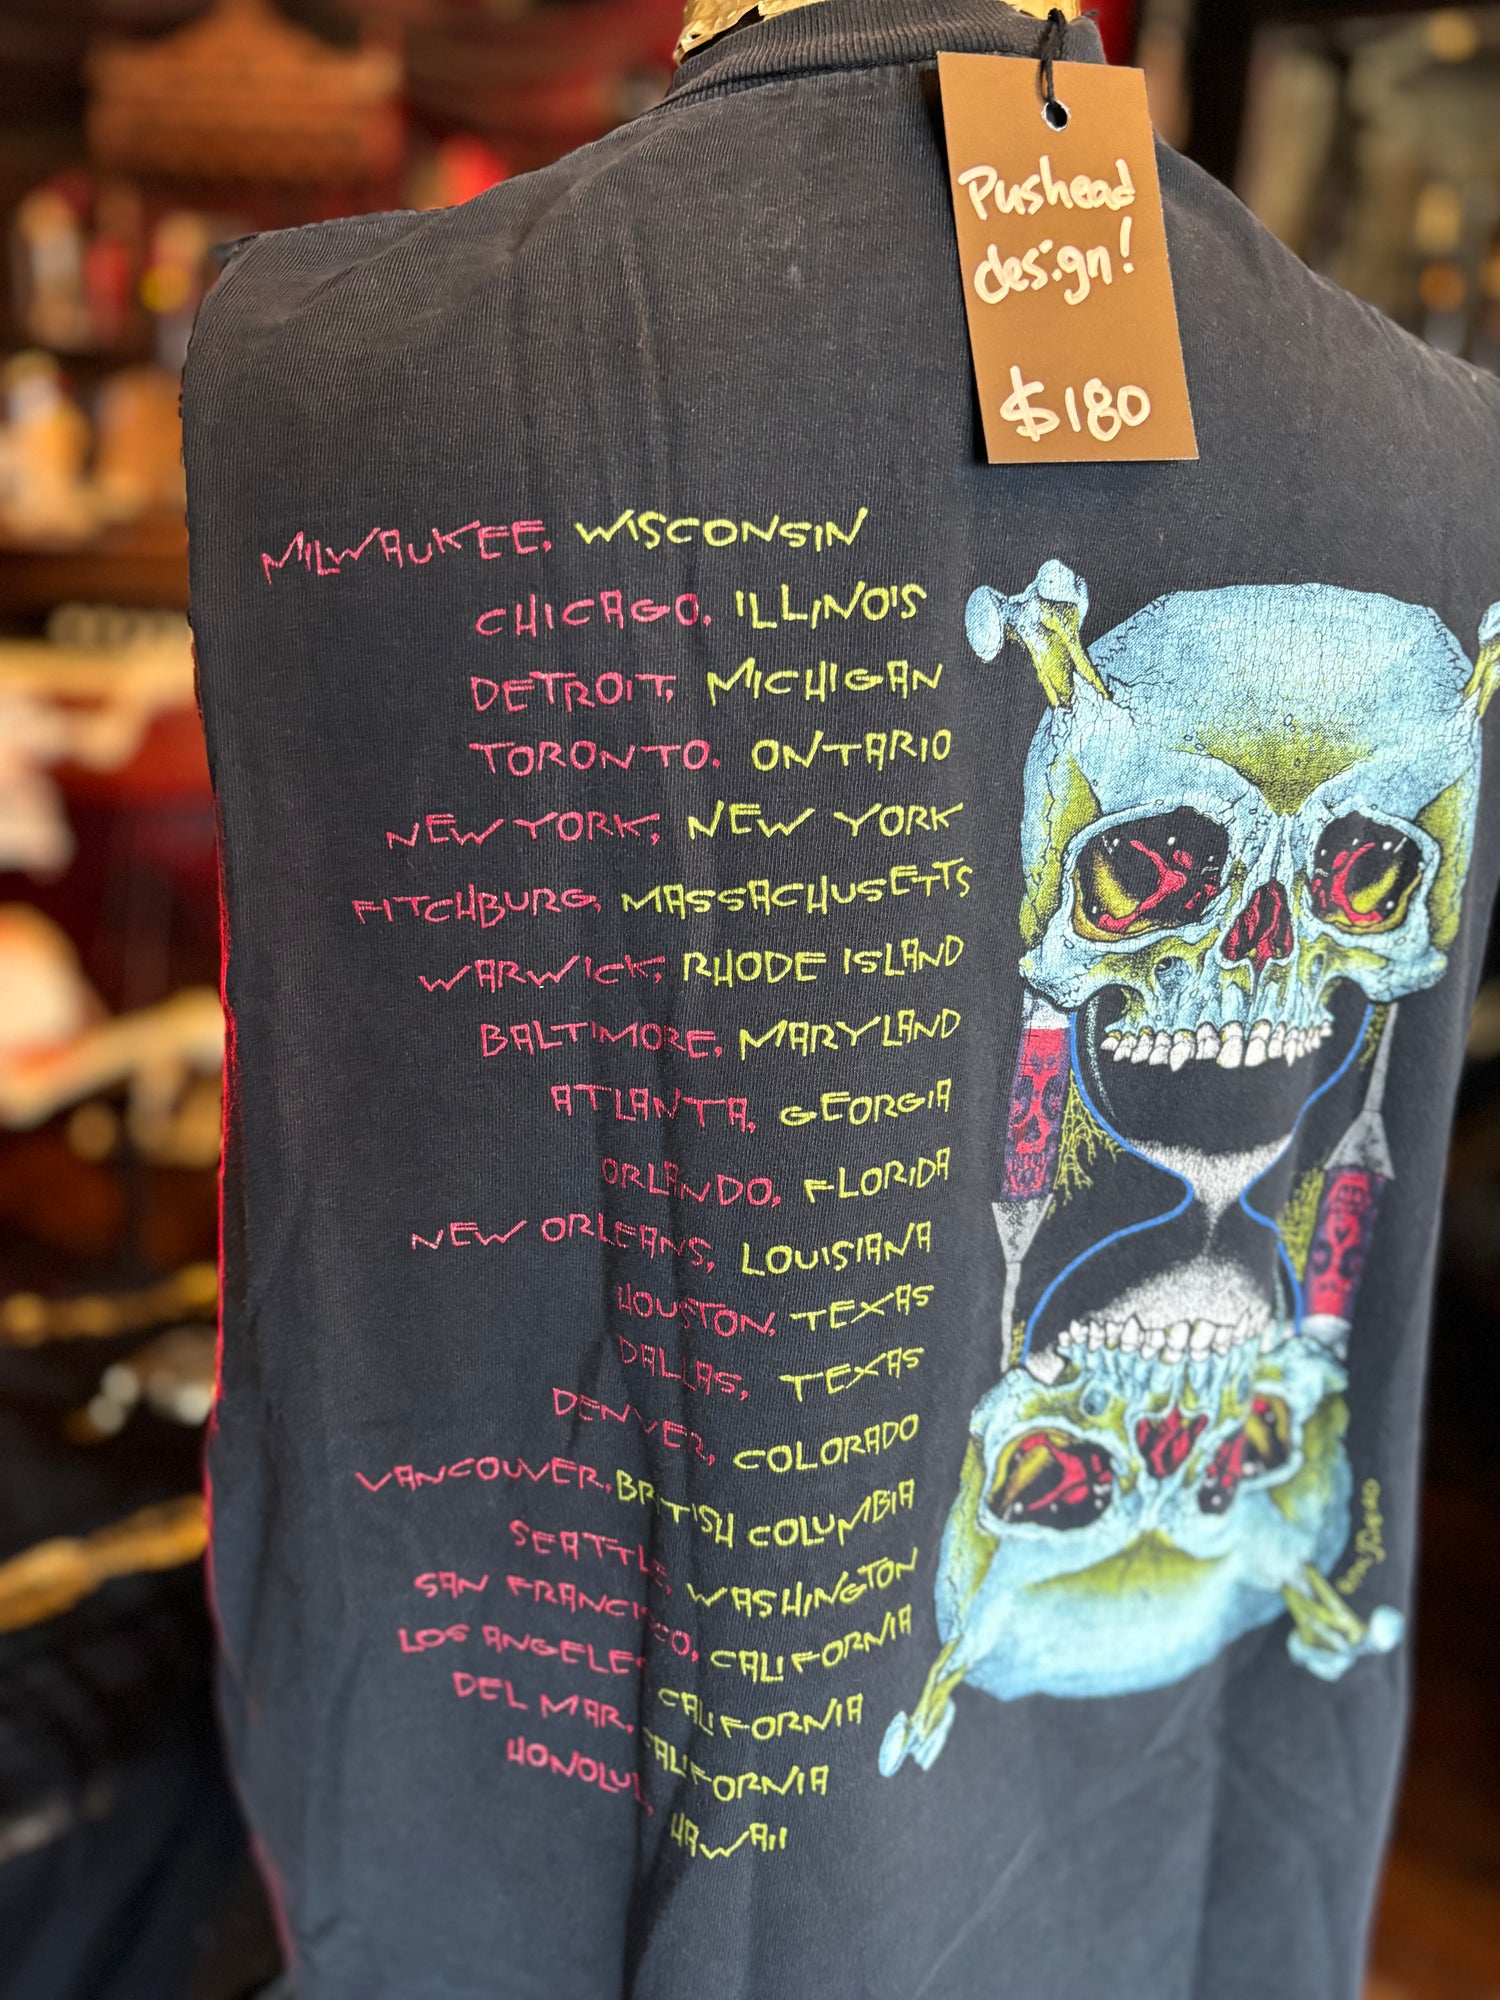 Pushead
design!
$180
MILWAUKEE, WISCONSIN
CHICAGO, ILLINOIS
DETROIT, MICHIGAN
TORONTO, ONTARIO
NEW YORK, NEW YORK
FITCHBURG, MASSACHUSETTS
WARWICK, RHODE ISLAND
BALTIMORE, MARYLAND
ATLANTA, GEORGIA
ORLANDO, FLORIDA
NEW ORLEANS, LOUISIANA
HOUSTON, TEXAS
DALLAS, TEXAS
DENVER, COLORADO
VANCOUVER, BRITISH COLUMBIA
SEATTLE, WASHINGTON
SAN FRANCISCO, CALIFORNIA
LOS ANGELES CALIFORNIA
DEL MAR, CALIFORNIA
HONOLUL, HAWAII